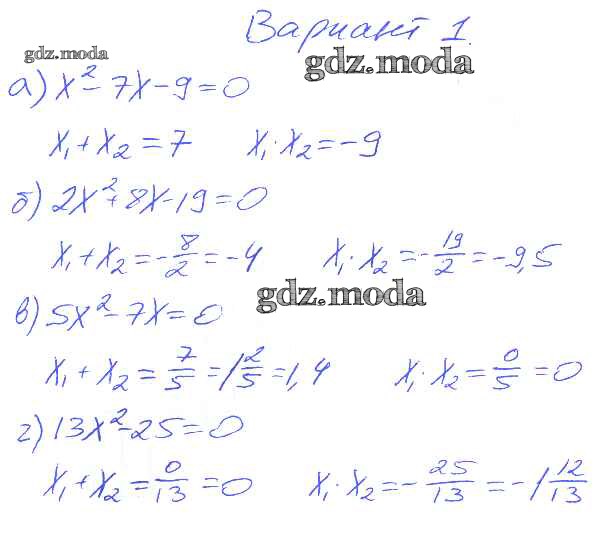 Вариант 1.
gdz.moda
gdz.moda
а) x² - 7x - 9 = 0
x₁ + x₂ = 7 x₁ · x₂ = -9
б) 2x² + 8x - 19 = 0
x₁ + x₂ = -8/2 = -4 x₁ · x₂ = -19/2 = -9,5
gdz.moda
в) 5x² - 7x = 0
x₁ + x₂ = 7/5 = 1 2/5 = 1,4 x₁ · x₂ = 0/5 = 0
г) 13x² - 25 = 0
x₁ + x₂ = 0/13 = 0 x₁ · x₂ = -25/13 = -1 12/13